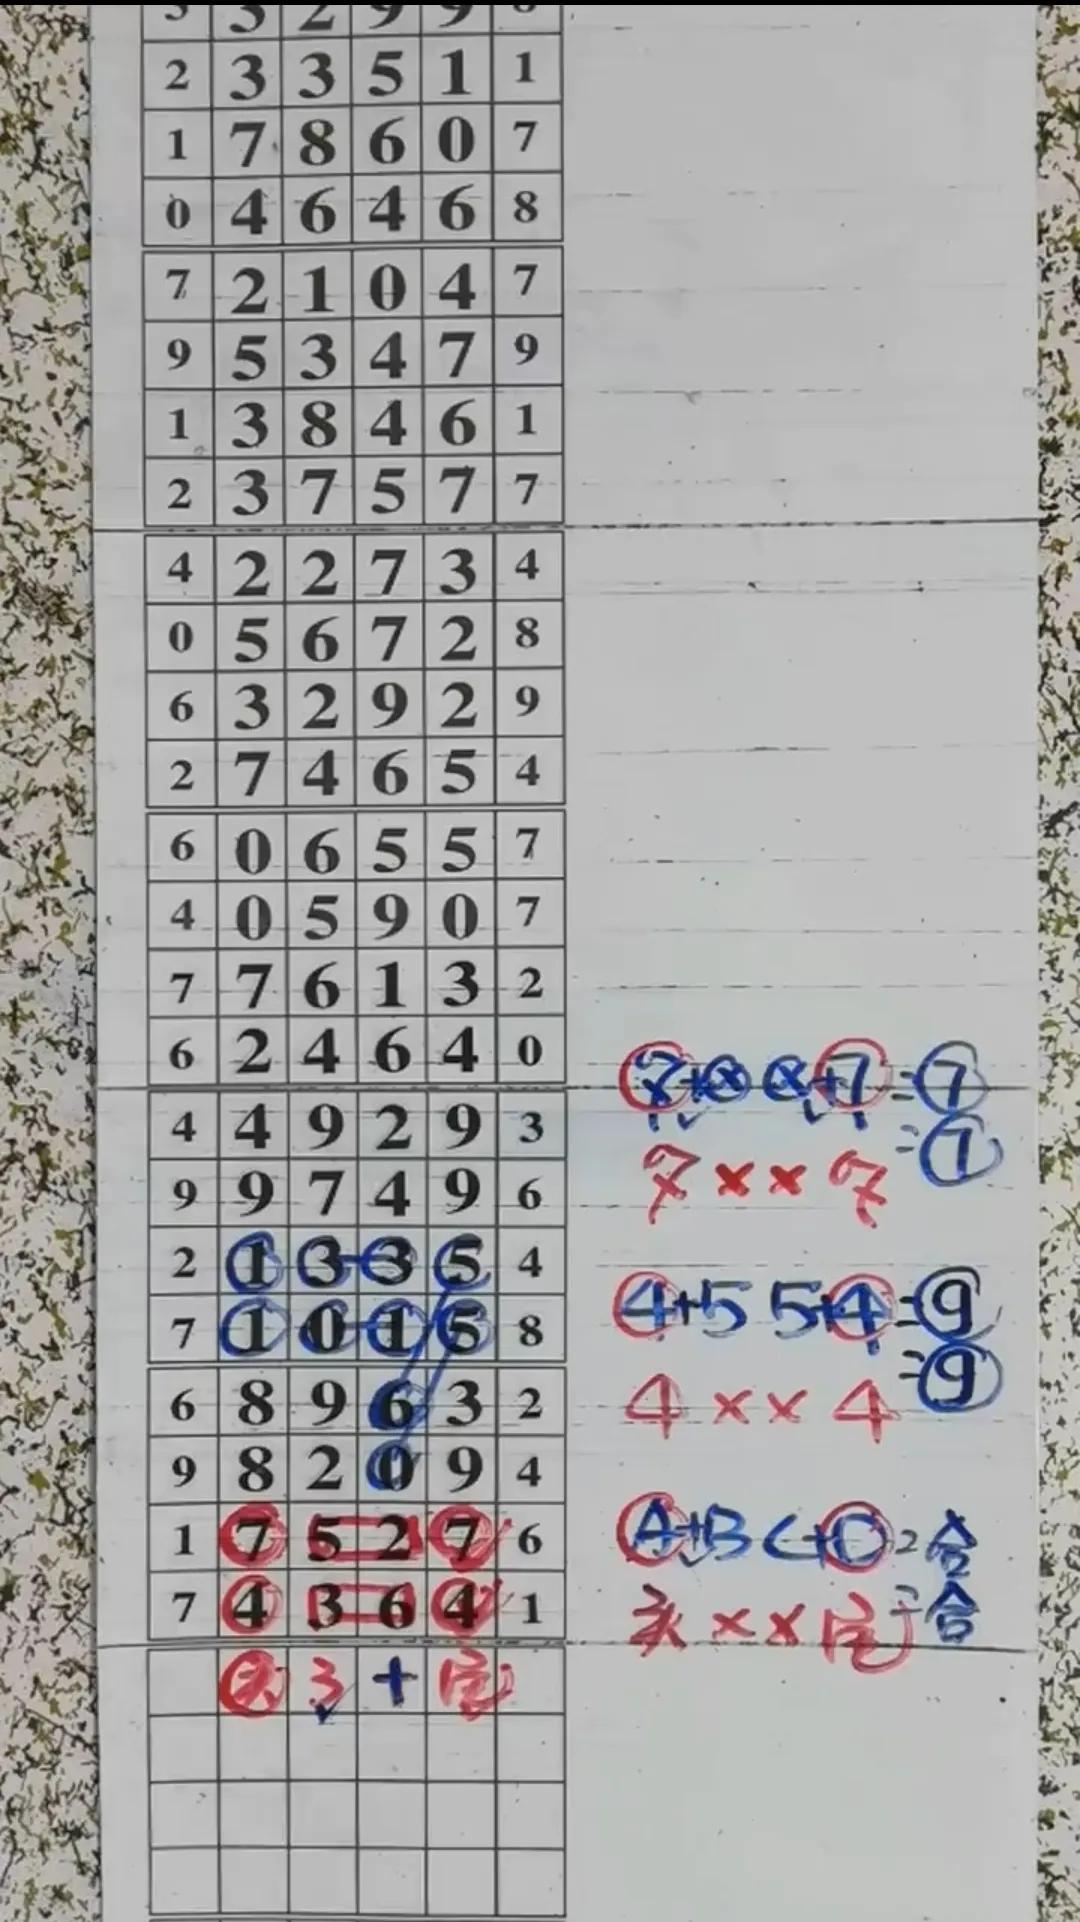 3 3 2 9 9
2 3 3 5 1 1
1 7 8 6 0 7
0 4 6 4 6 8
7 2 1 0 4 7
9 5 3 4 7 9
1 3 8 4 6 1
2 3 7 5 7 7
4 2 2 7 3 4
0 5 6 7 2 8
6 3 2 9 2 9
2 7 4 6 5 4
6 0 6 5 5 7
4 0 5 9 0 7
7 7 6 1 3 2
6 2 4 6 4 0
4 4 9 2 9 3
9 9 7 4 9 6
2 1 3 3 5 4
7 1 0 1 5 8
6 8 9 6 3 2
9 8 2 0 9 4
1 7 5 2 7 6
7 4 3 6 4 1
3 +
=7
7 × × 7
4+5 5+4=9
=9
4 × × 4
A+B C+D=合
=合
头 × ×